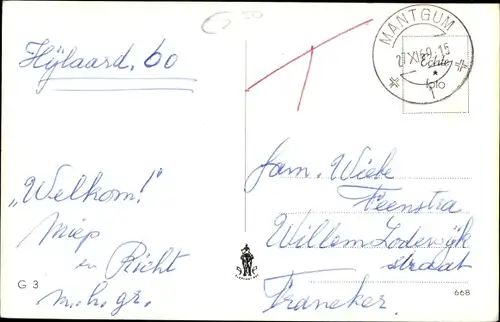 Hÿlaard, 60
„Welkom!"
Miep
en Richt
m.h.gr.
G 3
2 50
MANTGUM
Echte
foto
Fam. Wiebe
Feenstra
Willem Lodewÿk
straat
Franeker.
668